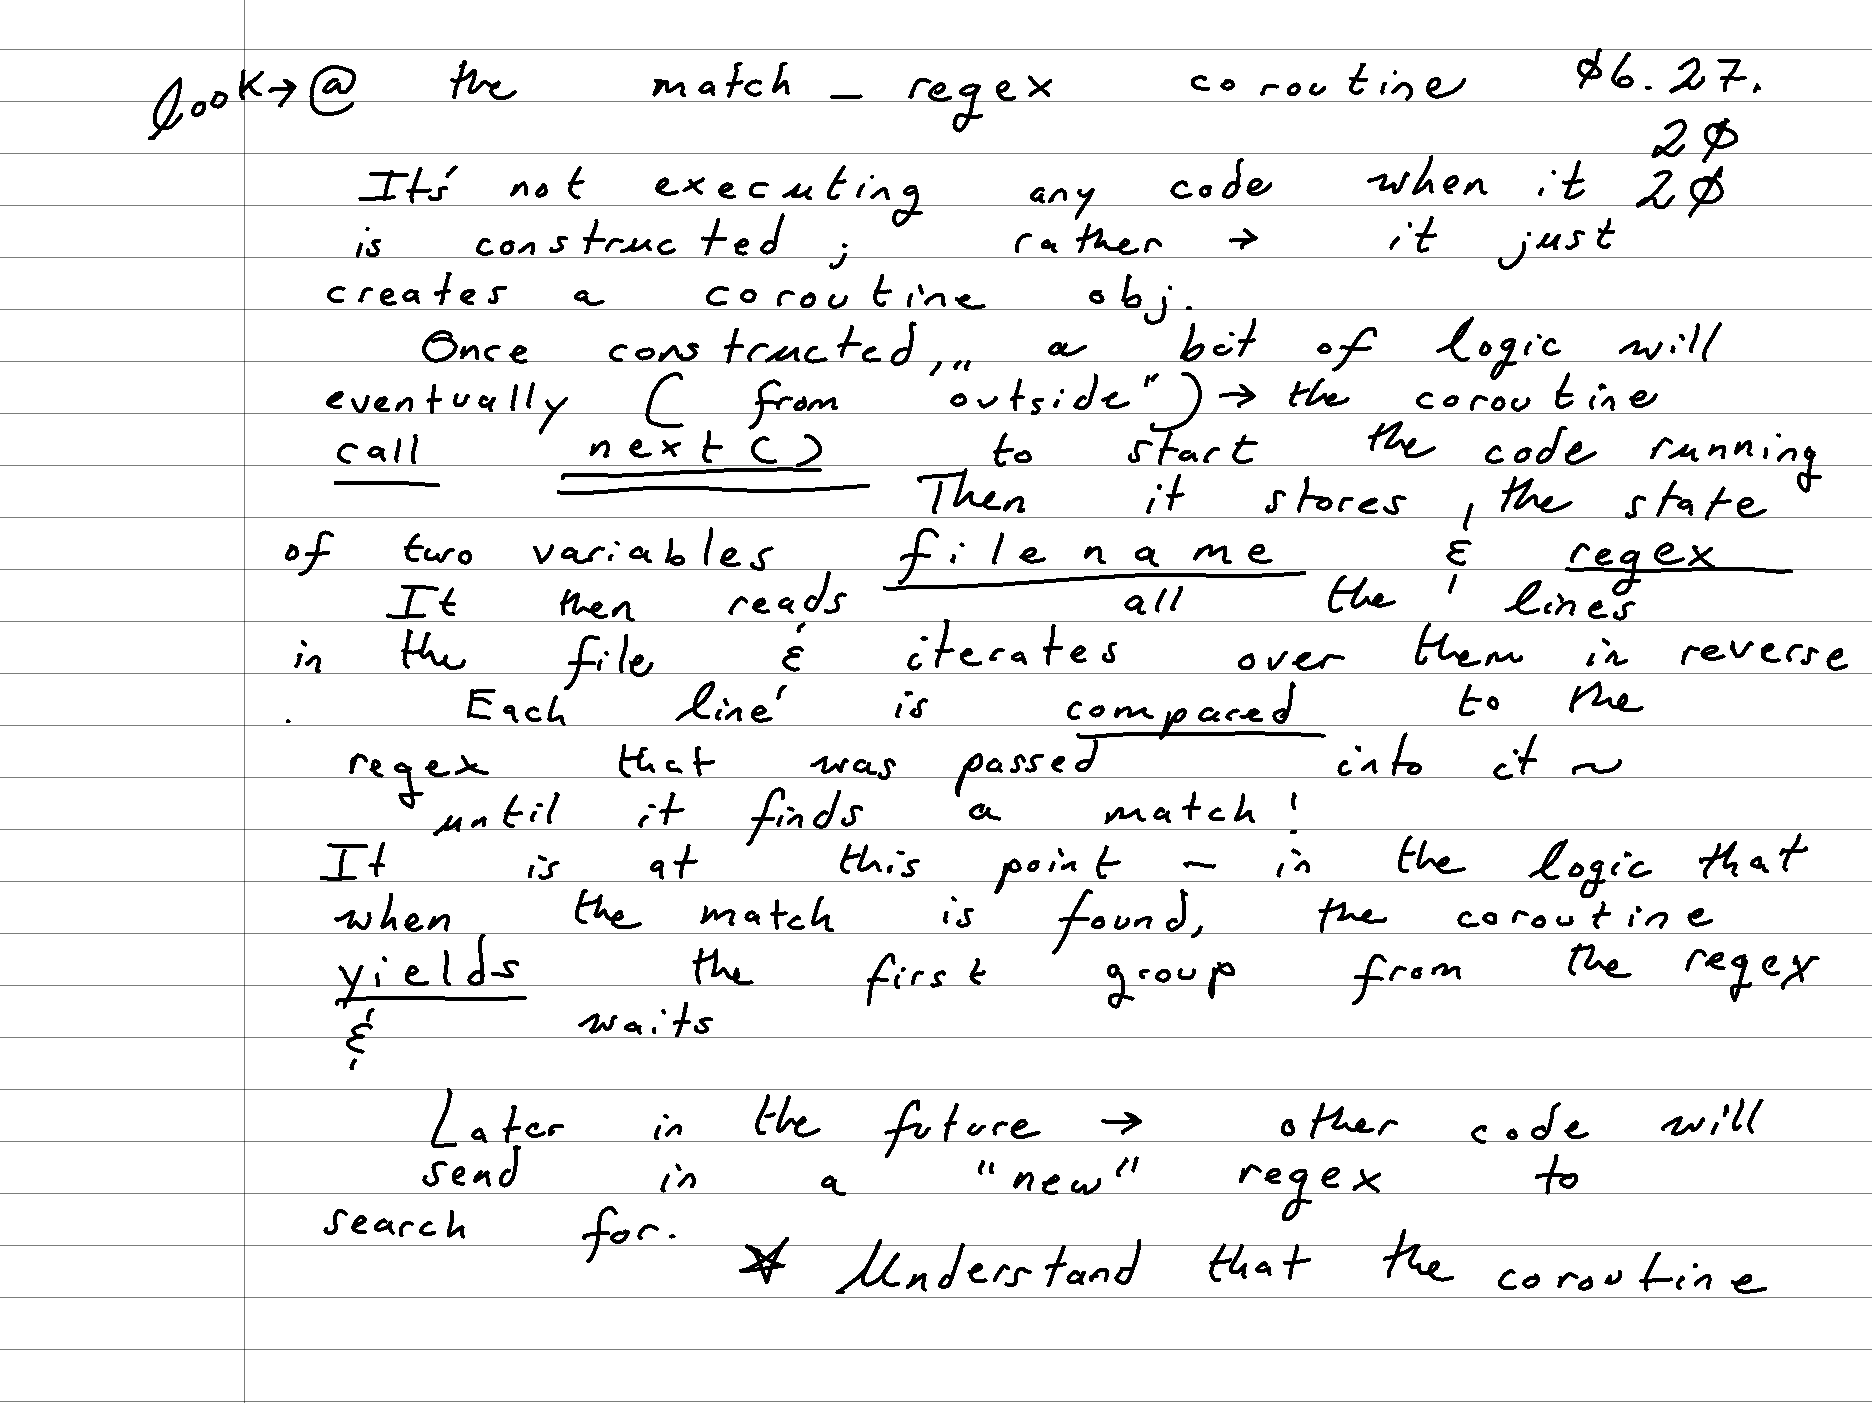 look → @ the match _ regex coroutine Ø6.27.
2Ø
It's not executing any code when it 2Ø
is constructed ; rather → it just
creates a coroutine obj.
Once constructed, a bit of logic will
eventually ( "from outside" ) → the coroutine
call next() to start the code running
Then it stores, the state
of two variables filename & regex
It then reads all the lines
in the file & iterates over them in reverse
. Each line is compared to the
regex that was passed into it ~
until it finds a match!
It is at this point – in the logic that
when the match is found, the coroutine
yields the first group from the regex
& waits
Later in the future → other code will
send in a "new" regex to
search for.
☆ Understand that the coroutine